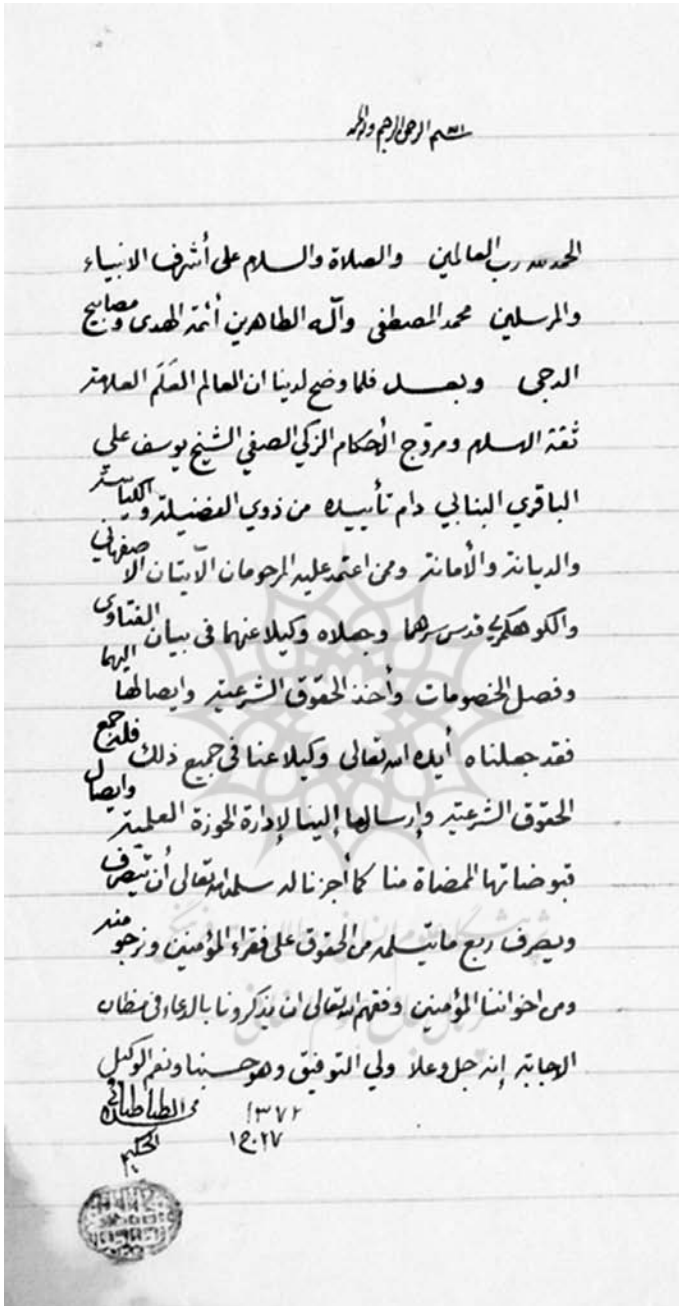 بسم الله الرحمن الرحيم وله الحمد
الحمد لله رب العالمين والصلاة والسلام على أشرف الانبياء
والمرسلين محمد المصطفى وآله الطاهرين أئمة الهدى ومصابيح
الدجى وبعد فلما وضح لدينا ان العالم العَلَم العلامة
ثقة الاسلام ومروّج الأحكام الزكي الصفي الشيخ يوسف علي
الباقري البنابي دام تأييده من ذوي الفضيلة والكياسة
والديانة والأمانة وممن اعتمد عليه المرحومان الآيتان الاصفهاني
والكوهكمري قدس سرهما وجعلاه وكيلا عنهما في بيان الفتاوى
وفصل الخصومات وأخذ الحقوق الشرعية وايصالها اليهما
فقد جعلناه أيده الله تعالى وكيلا عنا في جميع ذلك فله جمع
الحقوق الشرعية وإرسالها إلينا لإدارة الحوزة العلمية وايصال
قبوضاتها الممضاة منا كما أجزنا له سلمه الله تعالى أن يتصرف
ويصرف ربع ما يتسلمه من الحقوق على فقراء المؤمنين ونرجو منه
ومن اخواننا المؤمنين وفقهم الله تعالى ان يذكرونا بالدعاء في مظان
الاجابة إنه جل وعلا ولي التوفيق وهو حسبنا ونعم الوكيل
١٣٧٢ الطباطبائي
٢٧ ج١ الحكيم